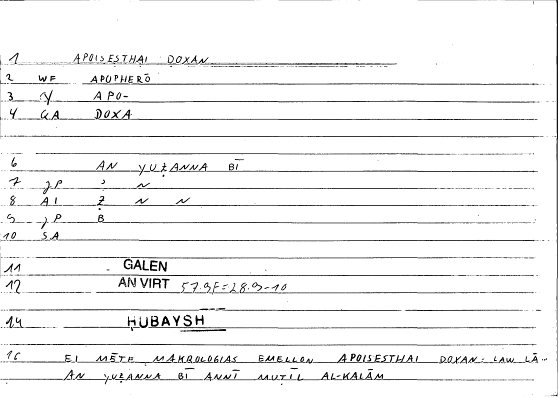 1 APOISESTHAI DOXAN
2 WF APOPHERŌ
3 APO-
4 GA DOXA
6 AN YUẒANNA BĪ
7 JP
8 AI Ẓ ~ ~
9 JP B
10 SA
11 GALEN
12 AN VIRT 57.9F=28.9-10
14 ḤUBAYSH
16 EI MĒTE MAKROLOGIAS EMELLON APOISESTHAI DOXAN: LAW LĀ..
AN YUẒANNA BĪ ANNĪ MUṬĪL AL-KALĀM